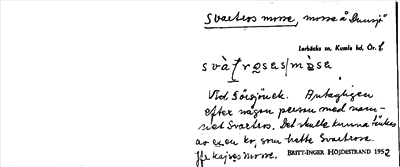 Svartros mosse, mosse å Duvsjö
Lerbäcks sn, Kumla hd, Ör. l
Vid Sörsjönek. Antagligen
efter någon person med nam-
net Svartros. Det skulle kunna tänkas
av en ko, som hette Svartrosa
Jfr kajses mosse. BRITT-INGER HÖJDESTRAND 1952